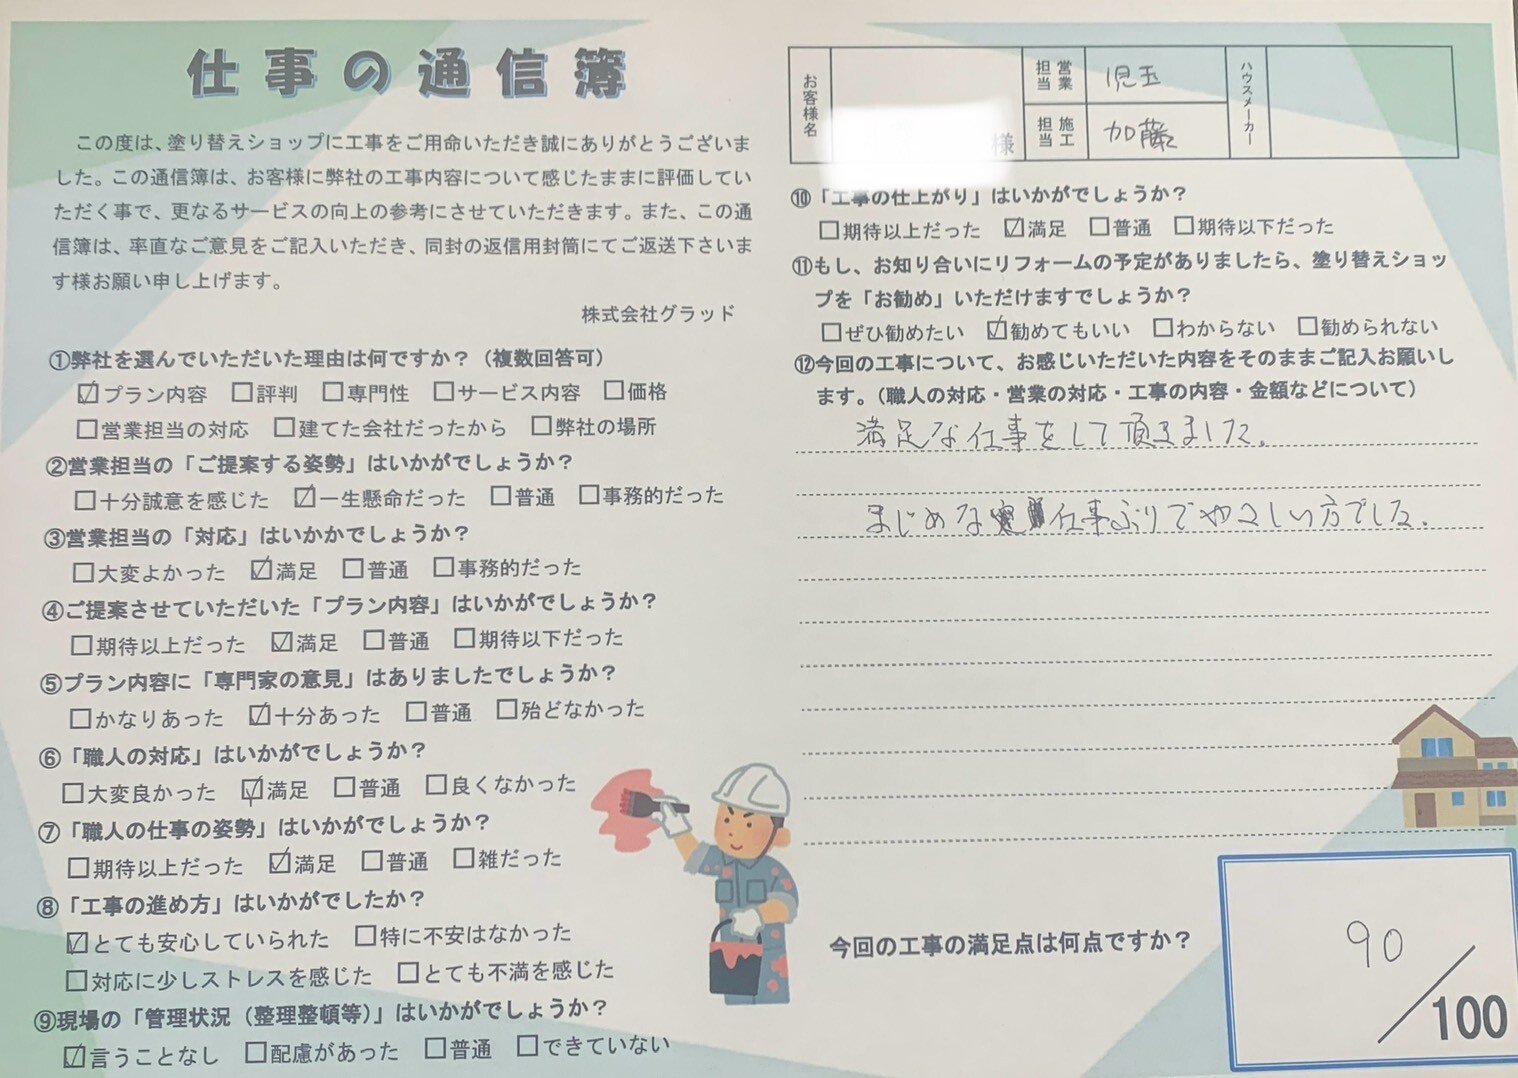 仕事の通信簿
この度は、塗り替えショップに工事をご用命いただき誠にありがとうございま
した。この通信簿は、お客様に弊社の工事内容について感じたままに評価してい
ただく事で、更なるサービスの向上の参考にさせていただきます。また、この通
信簿は、率直なご意見をご記入いただき、同封の返信用封筒にてご返送下さいま
す様お願い申し上げます。
株式会社グラッド
①弊社を選んでいただいた理由は何ですか？（複数回答可）
☑プラン内容 □評判 □専門性 □サービス内容 □価格
□営業担当の対応 □建てた会社だったから □弊社の場所
②営業担当の「ご提案する姿勢」はいかがでしょうか？
□十分誠意を感じた ☑一生懸命だった □普通 □事務的だった
③営業担当の「対応」はいかかでしょうか？
□大変よかった ☑満足 □普通 □事務的だった
④ご提案させていただいた「プラン内容」はいかがでしょうか？
□期待以上だった ☑満足 □普通 □期待以下だった
⑤プラン内容に「専門家の意見」はありましたでしょうか？
□かなりあった ☑十分あった □普通 □殆どなかった
⑥「職人の対応」はいかがでしょうか？
□大変良かった ☑満足 □普通 □良くなかった
⑦「職人の仕事の姿勢」はいかがでしょうか？
□期待以上だった ☑満足 □普通 □雑だった
⑧「工事の進め方」はいかがでしたか？
☑とても安心していられた □特に不安はなかった
□対応に少しストレスを感じた □とても不満を感じた
⑨現場の「管理状況（整理整頓等）」はいかがでしょうか？
☑言うことなし □配慮があった □普通 □できていない
お客様名 様 営業担当 児玉 ハウスメーカー
施工担当 加藤
⑩「工事の仕上がり」はいかがでしょうか？
□期待以上だった ☑満足 □普通 □期待以下だった
⑪もし、お知り合いにリフォームの予定がありましたら、塗り替えショッ
プを「お勧め」いただけますでしょうか？
□ぜひ勧めたい ☑勧めてもいい □わからない □勧められない
⑫今回の工事について、お感じいただいた内容をそのままご記入お願いし
ます。（職人の対応・営業の対応・工事の内容・金額などについて）
満足な仕事をして頂きました。
まじめな仕事ぶりでやさしい方でした。
今回の工事の満足点は何点ですか？
90
／100